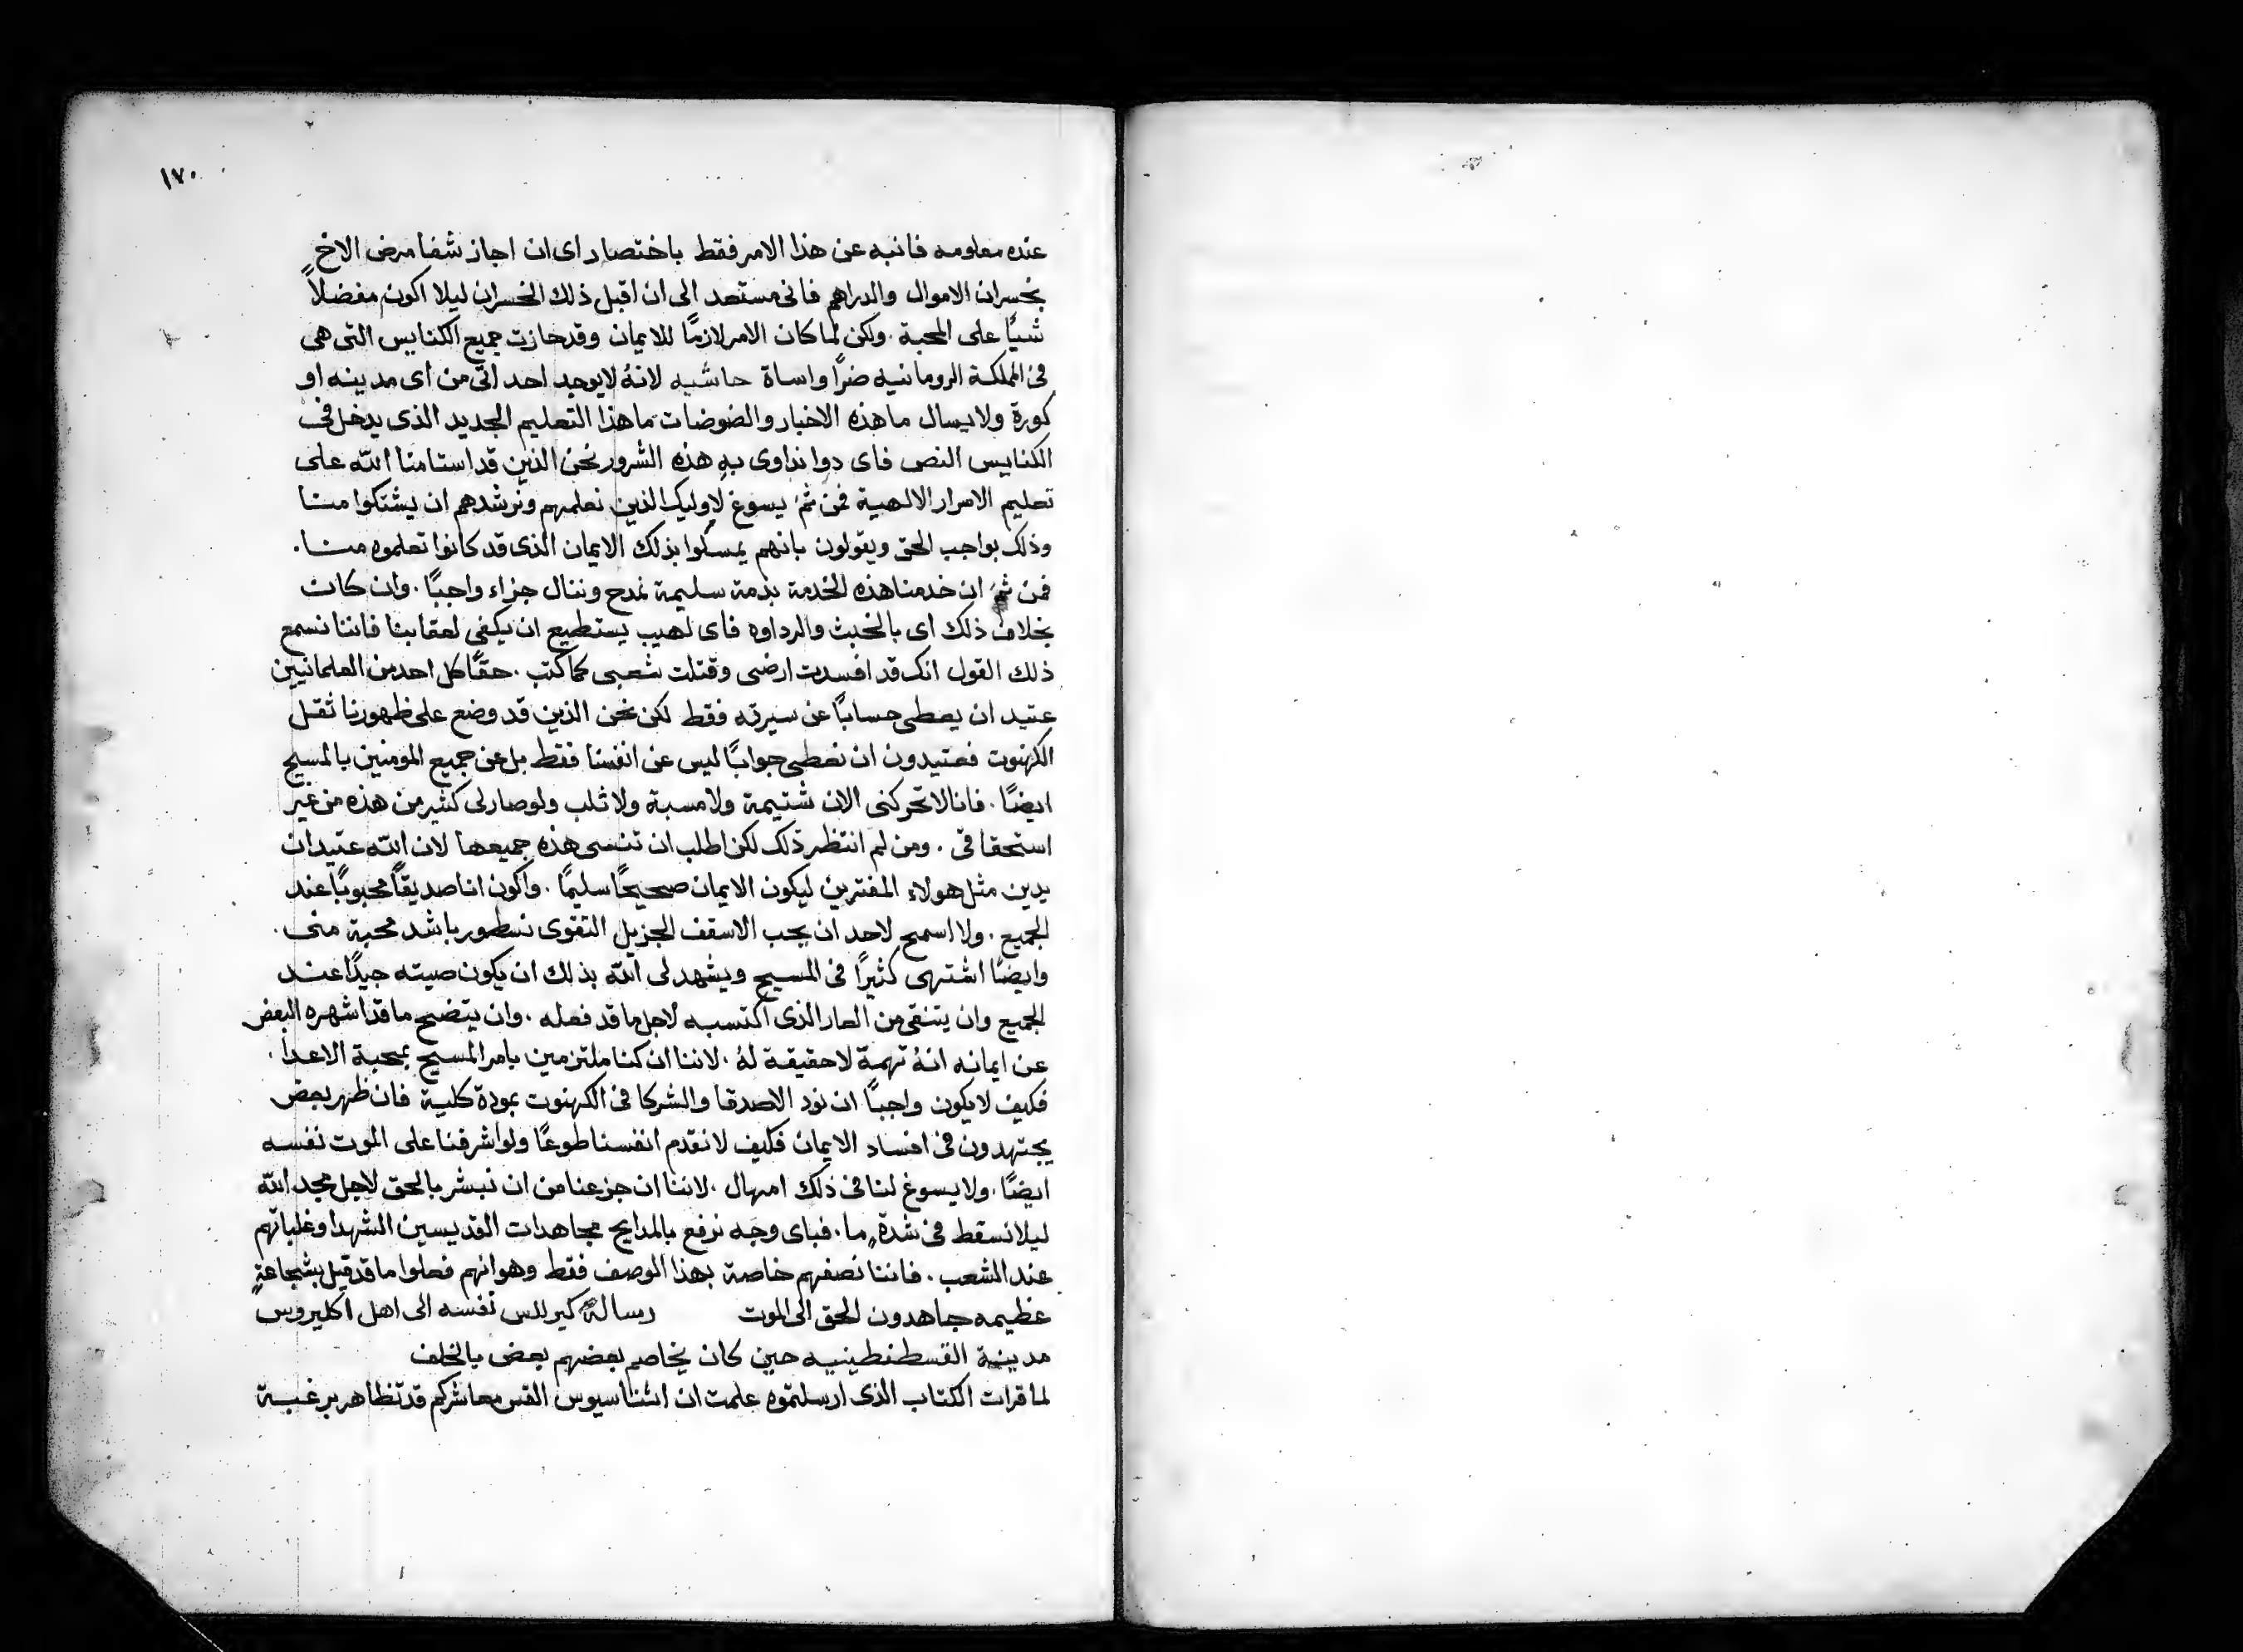 ١٧٠
عنده معلومه فانبه عن هذا الامر فقط باختصار اى ان اجاز شفا مرض الاخ
بخسران الاموال والدراهم فانى مستعد الى ان اقبل ذلك الخسران ليلا اكون مفضلاً
شياً على المحبة . ولكن لما كان الامر لازمًا للايمان وقد حازت جميع الكنايس التى هى
فى المملكة الرومانيه ضرًا واساة حاشيه لانهُ لا يوجد احد اتى من اى مدينه او
كورة ولا يسال ما هذه الاخبار والضوضات ما هذا التعليم الجديد الذى يدخل فى
الكنايس النص فاى دوا نداوى به هذه الشرور نحن الذين قد استامنا الله على
تعليم الاسرار الالهية فمن ثمَ يسوغ لاوليك الذين نعلمهم ونرشدهم ان يشتكوا منا
وذلك بواجب الحق ويقولون بانهم يمسكوا بذلك الايمان الذى قد كانوا تعلموه منا .
فمن ثمَ ان خدمنا هذه الخدمة بذمة سليمة نمدح وننال جزاء واجبًا . وان كان
بخلاف ذلك اى بالخبث والرداوه فاى لهيب يستطيع ان يكفى لعقابنا فاننا نسمع
ذلك القول انك قد افسدت ارضى وقتلت شعبى كما كتب . حقًا كل احد من العلمانيين
عتيد ان يعطى حسابًا عن سيرته فقط لكن نحن الذين قد وضع على ظهورنا ثقل
الكهنوت فعتيدون ان نعطى جوابًا ليس عن انفسنا فقط بل عن جميع المومنين بالمسيح
ايضًا . فانا لا تحركنى الان شتيمة ولا مسبة ولا ثلب ولو صار لى كثير من هذه من غير
استحقاقى . ومن لم انتظر ذلك لكن اطلب ان تنسى هذه جميعها لان الله عتيد ان
يدين مثل هولاء المفترين ليكون الايمان صحيحًا سليمًا . واكون انا صديقًا محبوبًا عند
الجميع . ولا اسمح لاحد ان يحب الاسقف الجزيل التقوى نسطور باشد محبة منى .
وايضًا اشتهى كثيرًا فى المسيح ويشهد لى الله بذلك ان يكون صيته جيدًا عند
الجميع وان يتنقى من العار الذى اكتسبه لاجل ما قد فعله . وان يتضح ما قد اشهره البعض
عن ايمانه انهُ تهمة لا حقيقة لهُ . لاننا ان كنا ملتزمين بامر المسيح بمحبة الاعدا .
فكيف لا يكون واجبًا ان نود الاصدقا والشركا فى الكهنوت بمودة كلية فان ظهر بعض
يجتهدون فى افساد الايمان فكيف لا نقدم انفسنا طوعًا ولو اشرفنا على الموت نفسه
ايضًا . ولا يسوغ لنا فى ذلك امهال . لاننا ان جزعنا من ان نبشر بالحق لاجل مجد الله
ليلا نسقط فى شدةٍ ما . فباى وجه نرفع بالمدايح مجاهدات القديسين الشهدا وغلباتهم
عند الشعب . فاننا نصفهم خاصة بهذا الوصف فقط وهو انهم فعلوا ما قد قيل بشجاعةٍ
عظيمه جاهدون للحق الى الموت رسالة كيرللس نفسه الى اهل اكليروس
مدينة القسطنطينيه حين كان يخاصم بعضهم بعض بالخلف
لما قرات الكتاب الذى ارسلتموه علمت ان اثناسيوس القس معاشركم قد تظاهر برغبة